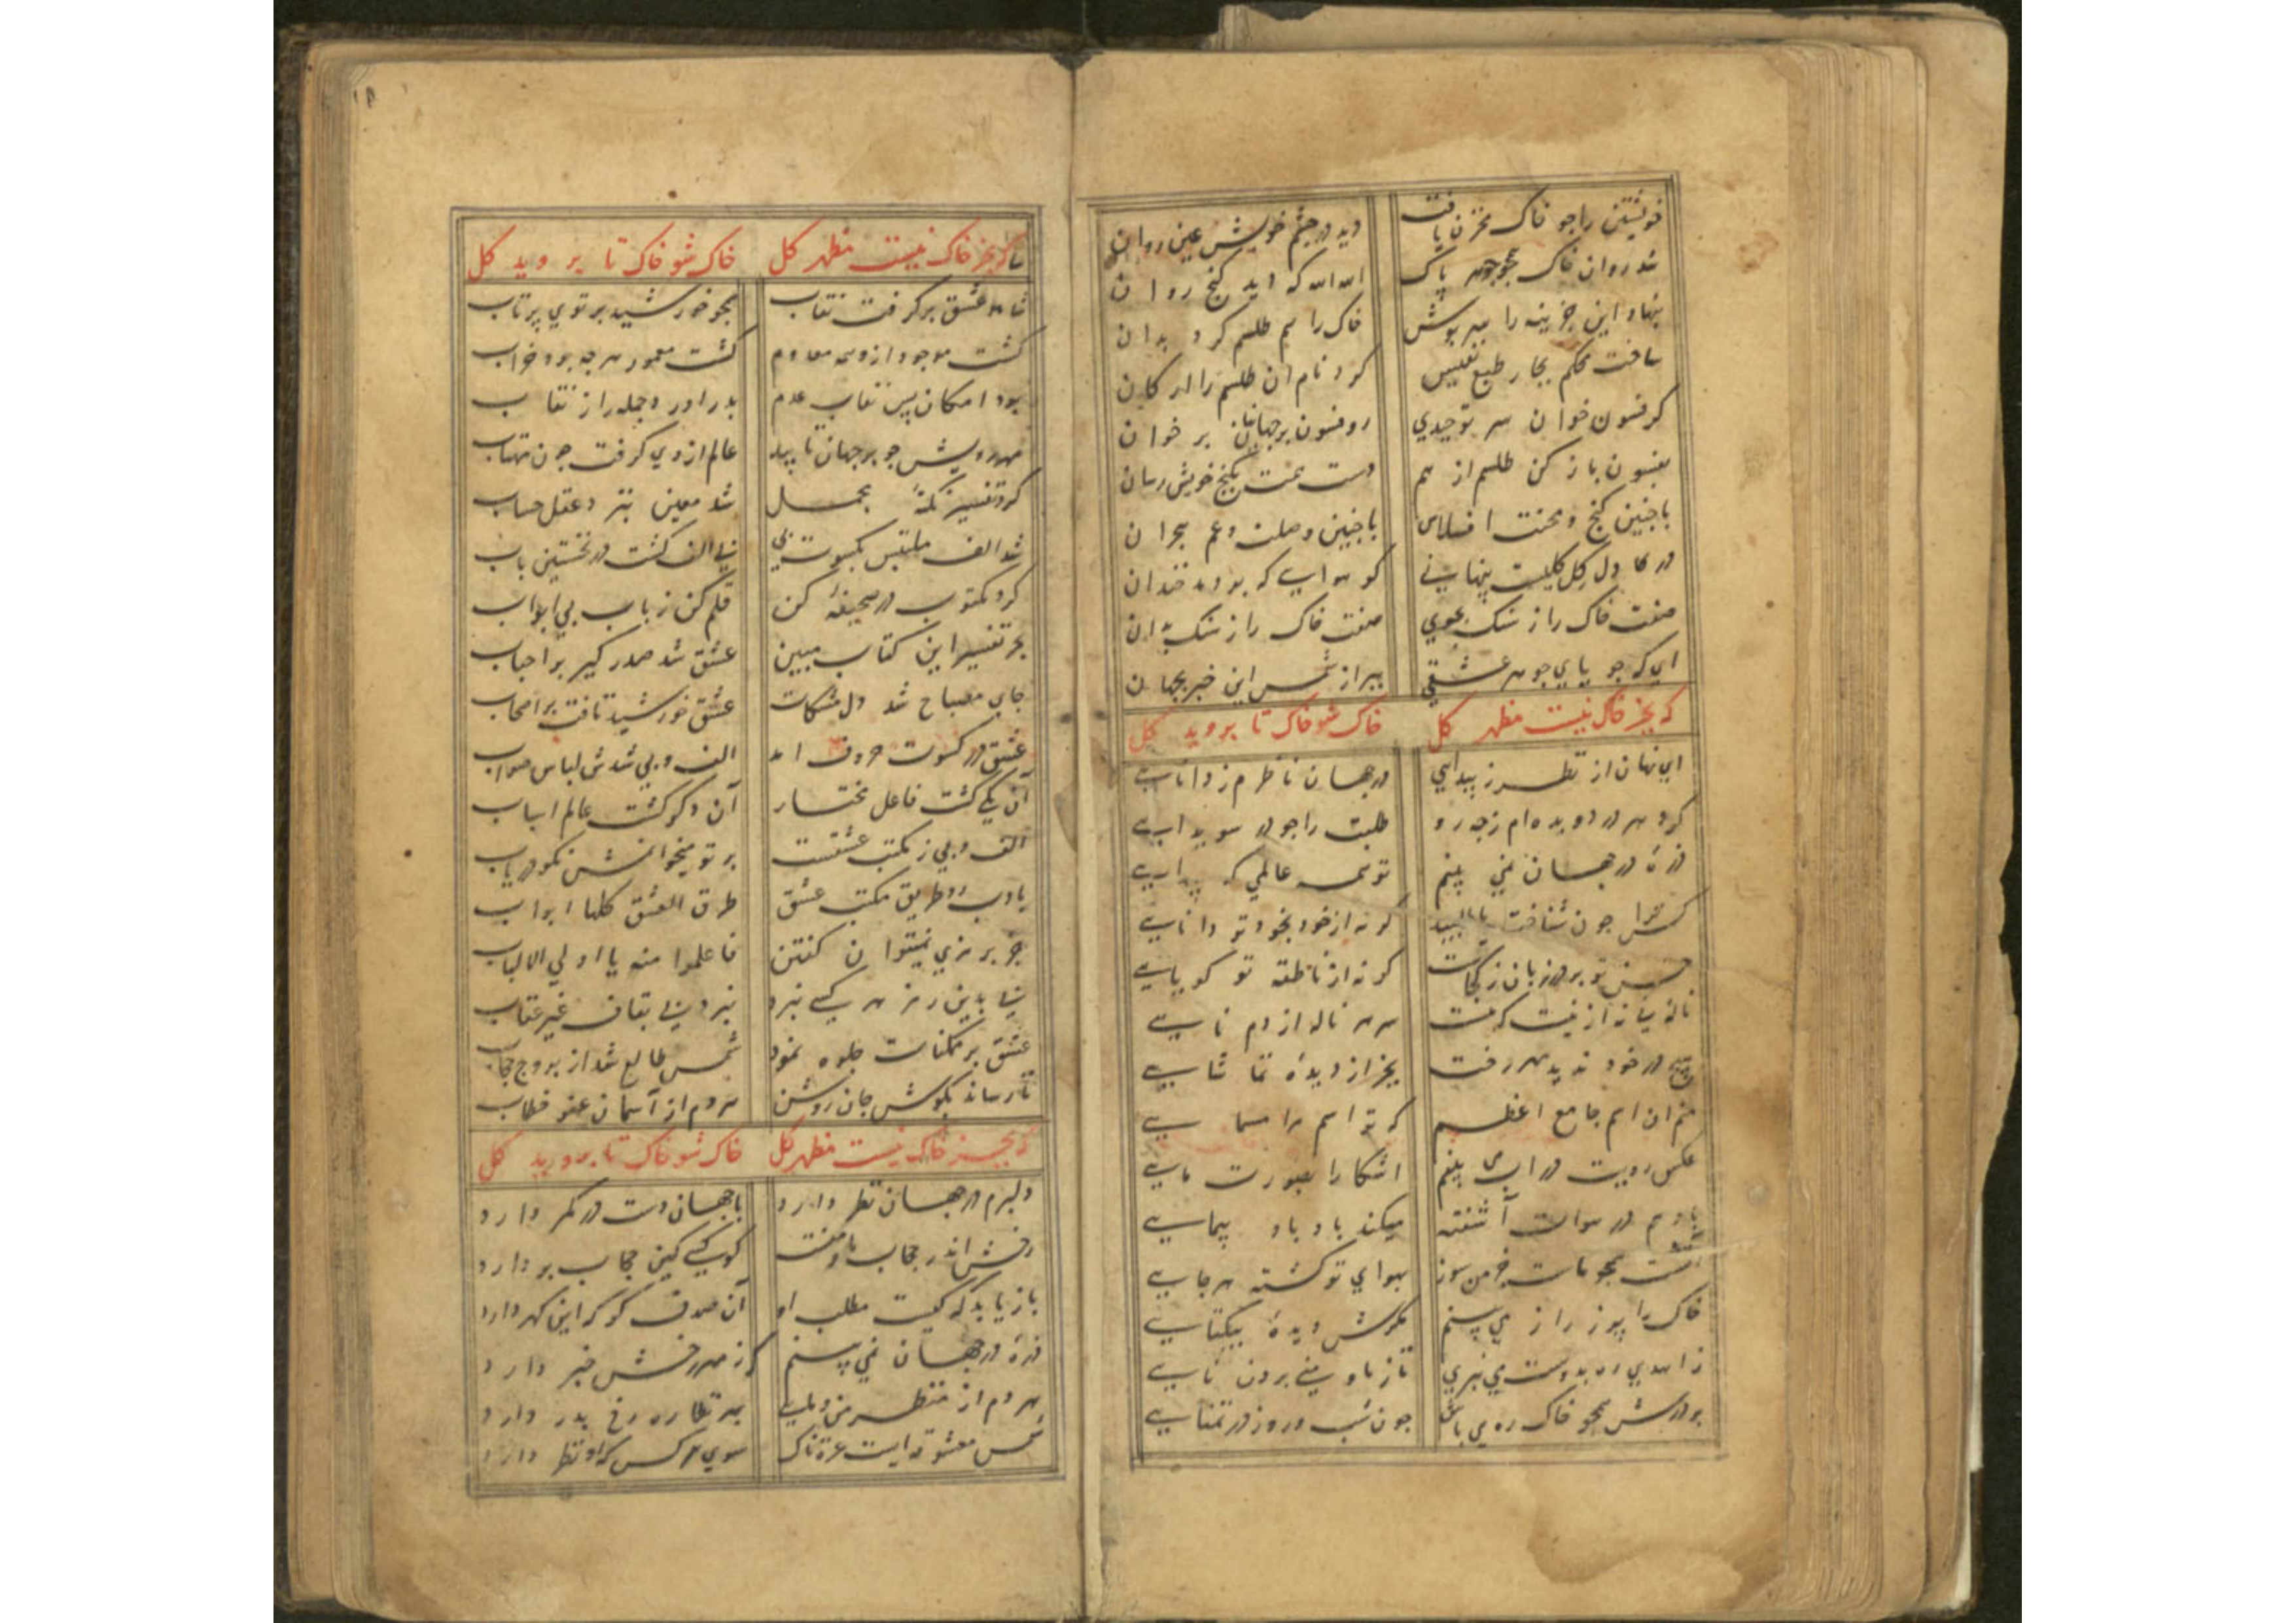 خویشتن را جو خاک مخزن یافت دید در چشم خویش عین روان
شد روان خاک همجو جوهر پاک الله الله که اید کنج روان
بنهاد این خزینه را سربوش خاک را هم طلسم کرد بدان
ساخت محکم بجار طبع نفیس کرد نام ان طلسم را ارکان
کر فسون خوان سر توحیدی رو فسون بر جهانیان بر خوان
بفسون باز کن طلسم از هم دست همت بکنج خویش رسان
با جنین کنج و محنت افلاس با جنین وصلت و غم هجران
در کل دل کلیست پنهانی کو هوایی که بودش خندان
صفت خاک را ز سنک مجوی صفت خاک را ز سنک بدان
ای که جویای جوهر عشقی ببر از شمس این خبر بجهان
که بجز خاک نیست مظهر کل خاک شو خاک تا بروید کل
ای نهان از نظر ز پیدایی در جهان ناظرم ز دانایی
کرد مهر در دو دیده ام زجه رو طلبت را جو در سویدایی
ذره در جهان نمی بینم تو همه عالمی که پیدایی
کس ترا جون شناخت یا بیند کر نه از خود بخود تو دانایی
سخن تو بر زبان ز کجاست کر نه از ناطقه تو کویایی
ناله نی نه از نیست که هست سر هر ناله از دم نایی
هیج در خود ندید هر رفت بجز از دیده تماشایی
منم ان اسم جامع اعظم که تو اسم را مسمایی
عکس رویت در اب می بینم اشکارا بصورت مایی
باد هم در هوات آشفته میکند باد باد پیمایی
آتشت همجو مات خرمن سوز بهوای تو کشته هر جایی
خاک را بیوز راز می بینم بکوش دیده بیکتایی
زاهدی ره بدوست می نبری تا ز ما و منی برون نایی
بر درش همجو خاک ره می باش جون شب و روز در تمنایی
که بجز خاک نیست مظهر کل خاک شو خاک تا بروید کل
شاه عشق برکرفت نقاب همجو خورشید بر توی پرتاب
کشت موجود ازو همه معدوم کشت معمور هر جه بود خراب
بود امکان پس نقاب عدم بدر اورد جمله را ز نقاب
مهر رویش جو بر جهان تابید عالم از وی کرفت جون مهتاب
کرد تفسیر نکتهٔ مجمل شد معین بنزد عقل حساب
شد الف ملتبس بکسوت بی بی الف کشت در نخستین باب
کرد مکتوب در صحیفهٔ کن قلم کن ز باب بی ابواب
بهر تفسیر این کتاب مبین عشق شد صدر کیر بر احباب
جای مصباح شد دل مشکات عشق خورشید تافت بر اصحاب
عشق در کسوت حروف امد الف و بی شدش لباس صواب
آن یکی کشت فاعل مختار آن دکر کشت عالم اسباب
الف و بی ز مکتب عشقست بر تو میخوانمش نکو دریاب
با ادب رو طریق مکتب عشق طرق العشق کلها اداب
جز برمزی نمیتوان کفتن فاعلموا منه یا اولی الالباب
پی بدین رمز هر کسی نبرد نبرد پی بقاف غیر عقاب
عشق بر ممکنات جلوه نمود شمس طالع شد از بروج حجاب
تا رساند بکوش جان روشن هر دم از آسمان عفو خطاب
که بجز خاک نیست مظهر کل خاک شو خاک تا بروید کل
دلبرم در جهان نظر دارد با جهان دست در کمر دارد
رخش اندر حجاب ما و منست کو کسی کین حجاب بر دارد
باز یابد که کیست مطلب او آن صدف کو که این کهر دارد
ذرهٔ در جهان نمی بینم کز مهر رخش خبر دارد
هر دم از منظر من و مایی بهر نظاره رخ بدر دارد
شمس معشوقه ایست عزت ناک سوی هر کس که او نظر دارد